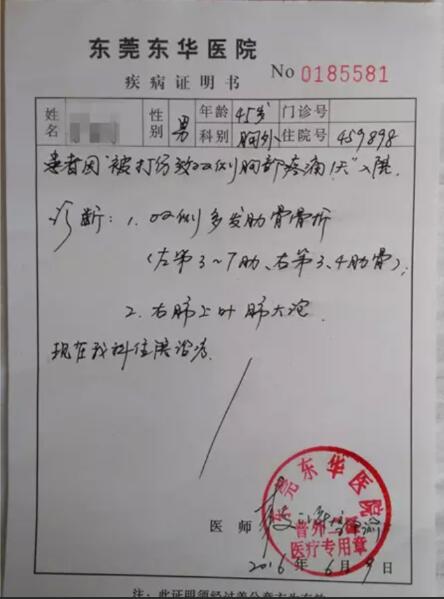 东莞东华医院
疾病证明书
No 0185581
姓名 性别 男 年龄 45岁 门诊号
科别 胸外 住院号 459898
患者因"被打伤致双侧胸部疼痛1天"入院.
诊断：1. 双侧多发肋骨骨折
(左第3~7肋、右第3、4肋骨);
2. 右肺上叶肺大泡
现在我科住院治疗
医师
东莞东华医院
普外二科
医疗专用章
2016年6月9日
注：此证明须经过盖公章方为有效